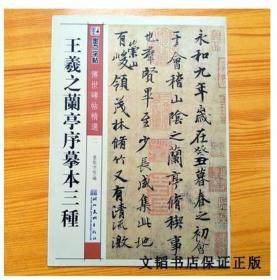 墨点字帖
傳世碑帖精選
王羲之蘭亭序摹本三種
永和九年歲在癸丑暮春之初會
于會稽山陰之蘭亭脩稧事
也羣賢畢至少長咸集此地
有崇山峻領茂林脩竹又有清流激
文韬书店保证正版